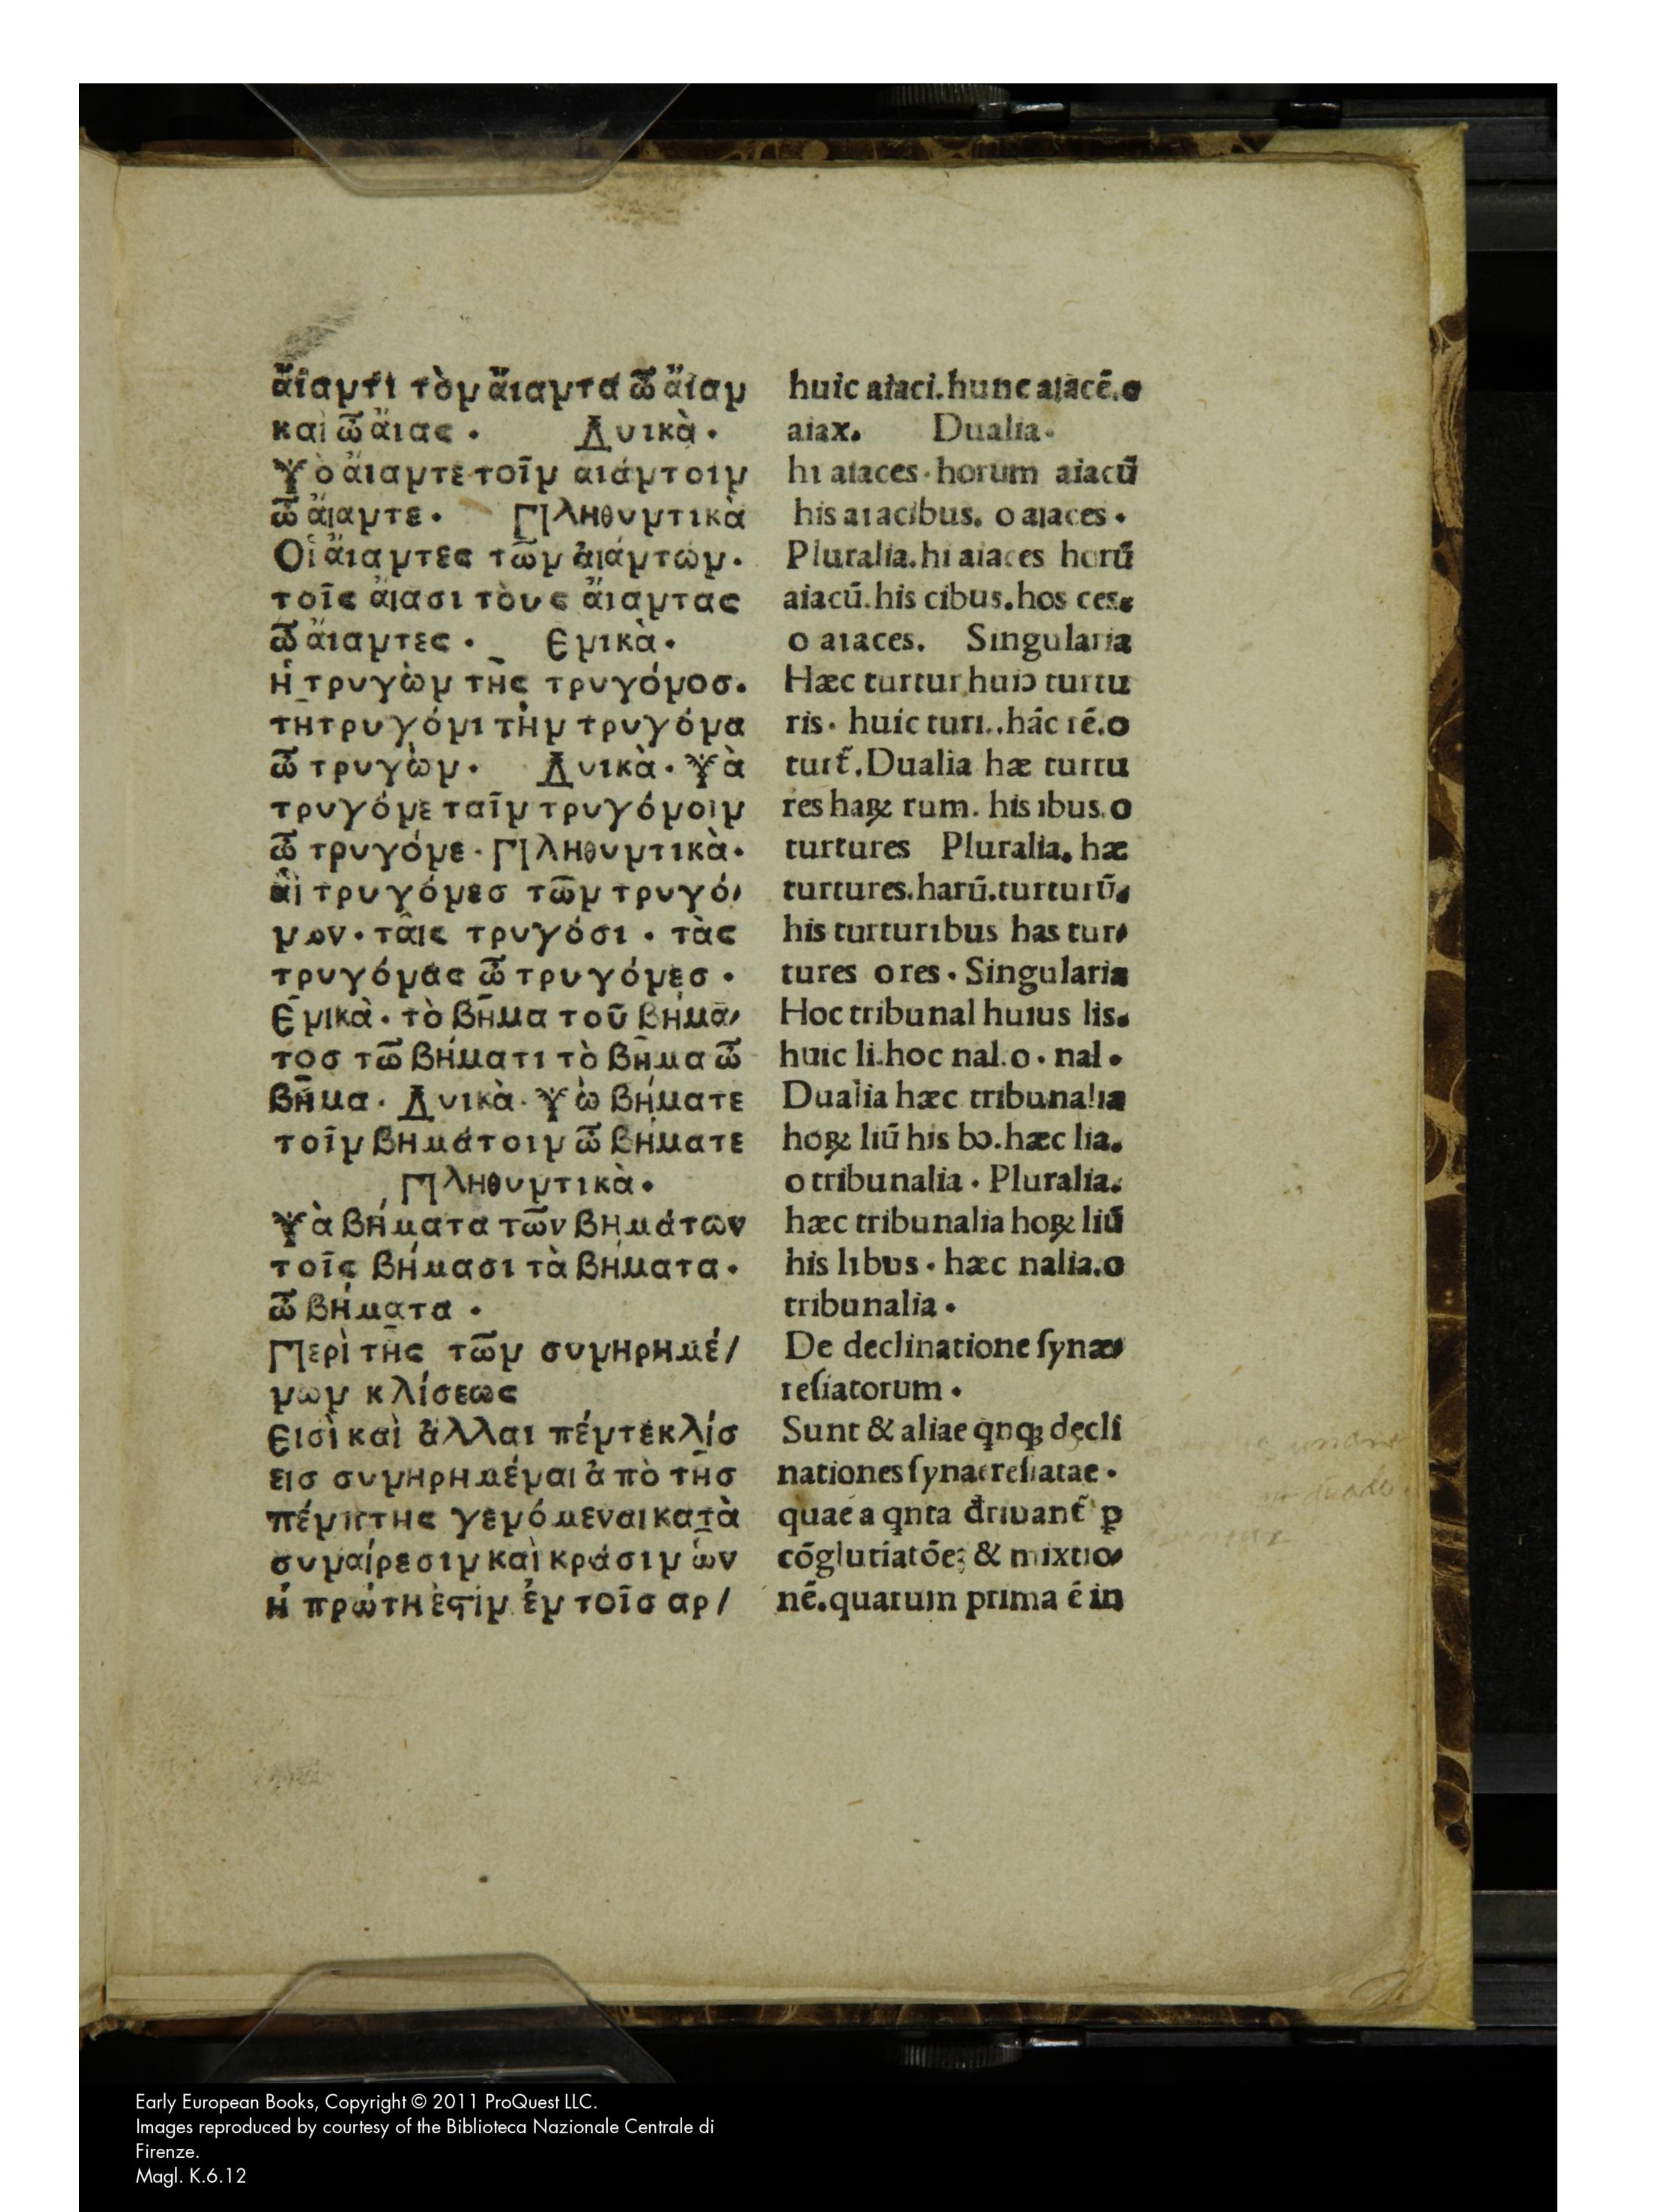 ἄιαντι τὸν ἄιαντα ὦ ἄιαν
καὶ ὦ ἄιας · Δυικὰ ·
Τὸ ἄιαντε τοῖν αιάντοιν
ὦ ἄιαντε · Πληθυντικὰ
Οἱ ἄιαντες τῶν ἀιάντων ·
τοῖς ἄιασι τὸυς ἄιαντας
ὦ ἄιαντες · Ενικὰ ·
Ἡ τρυγὼν τῆς τρυγόνοσ ·
τῆ τρυγόνι τὴν τρυγόνα
ὦ τρυγὼν · Δυικὰ · Τὰ
τρυγόνε ταῖν τρυγόνοιν
ὦ τρυγόνε · Πληθυντικὰ ·
ἁι τρυγόνεσ τῶν τρυγό,
νων · τᾶις τρυγόσι · τὰς
τρυγόνας ὦ τρυγόνεσ ·
Ενικὰ · τὸ βῆμα τοῦ βήμα,
τοσ τῶ βήματι τὸ βῆμα ὦ
βῆμα · Δυικὰ · Τὼ βήματε
τοῖν βημάτοιν ὦ βήματε
Πληθυντικὰ ·
Τὰ βήματα τῶν βημάτων
τοῖς βήμασι τὰ βήματα ·
ὦ βήματα ·
Περὶ τῆς τῶν συνηρημέ/
νων κλίσεως
Εισὶ καὶ ἄλλαι πέντε κλίσ
εισ συνηρημέναι ἀπὸ τῆσ
πέμπτης γενόμεναι κατὰ
συναίρεσιν καὶ κράσιν ὧν
ἡ πρώτη ἐϛὶν ἐν τοῖσ αρ/
huic aiaci. hunc aiacē. o
aiax. Dualia ·
hi aiaces · horum aiacū
his aiacibus. o aiaces ·
Pluralia. hi aiaces horū
aiacū. his cibus. hos ces.
o aiaces. Singularia
Hæc turtur huiɔ turtu
ris · huic turi.. hāc rē. o
turt̃. Dualia hæ turtu
res haꝝ rum. his ibus. o
turtures Pluralia. hæ
turtures. harū. turturū.
his turturibus has tur,
tures o res · Singularia
Hoc tribunal huius lis.
huic li. hoc nal. o · nal ·
Dualia hæc tribunalia
hoꝝ liū his bɔ. hæc lia.
o tribunalia · Pluralia.
hæc tribunalia hoꝝ liū
his libus · hæc nalia. o
tribunalia ·
De declinatione ſynæ,
reſiatorum ·
Sunt & aliae q̄nq; decli
nationes ſynaereſiatae ·
quae a q̄nta đriuant̃ ꝑ
cōglutiatōe; & mixtio,
nē. quarum prima ē in
Early European Books, Copyright © 2011 ProQuest LLC.
Images reproduced by courtesy of the Biblioteca Nazionale Centrale di
Firenze.
Magl. K.6.12